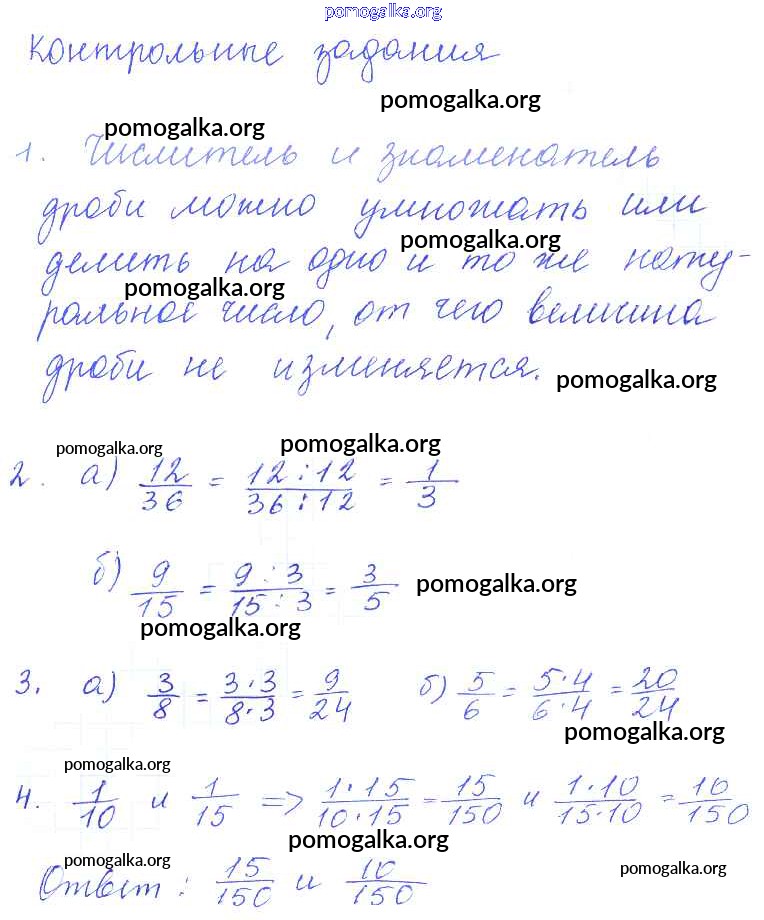 pomogalka.org
Контрольные задания
pomogalka.org
pomogalka.org
1. Числитель и знаменатель
дроби можно умножать или
pomogalka.org
делить на одно и то же нату-
pomogalka.org
ральное число, от чего величина
дроби не изменяется.
pomogalka.org
pomogalka.org pomogalka.org
2. а) 12/36 = 12:12/36:12 = 1/3
б) 9/15 = 9:3/15:3 = 3/5 pomogalka.org
pomogalka.org
3. а) 3/8 = 3·3/8·3 = 9/24 б) 5/6 = 5·4/6·4 = 20/24
pomogalka.org
pomogalka.org
4. 1/10 и 1/15 => 1·15/10·15 = 15/150 и 1·10/15·10 = 10/150
pomogalka.org
pomogalka.org pomogalka.org
Ответ: 15/150 и 10/150